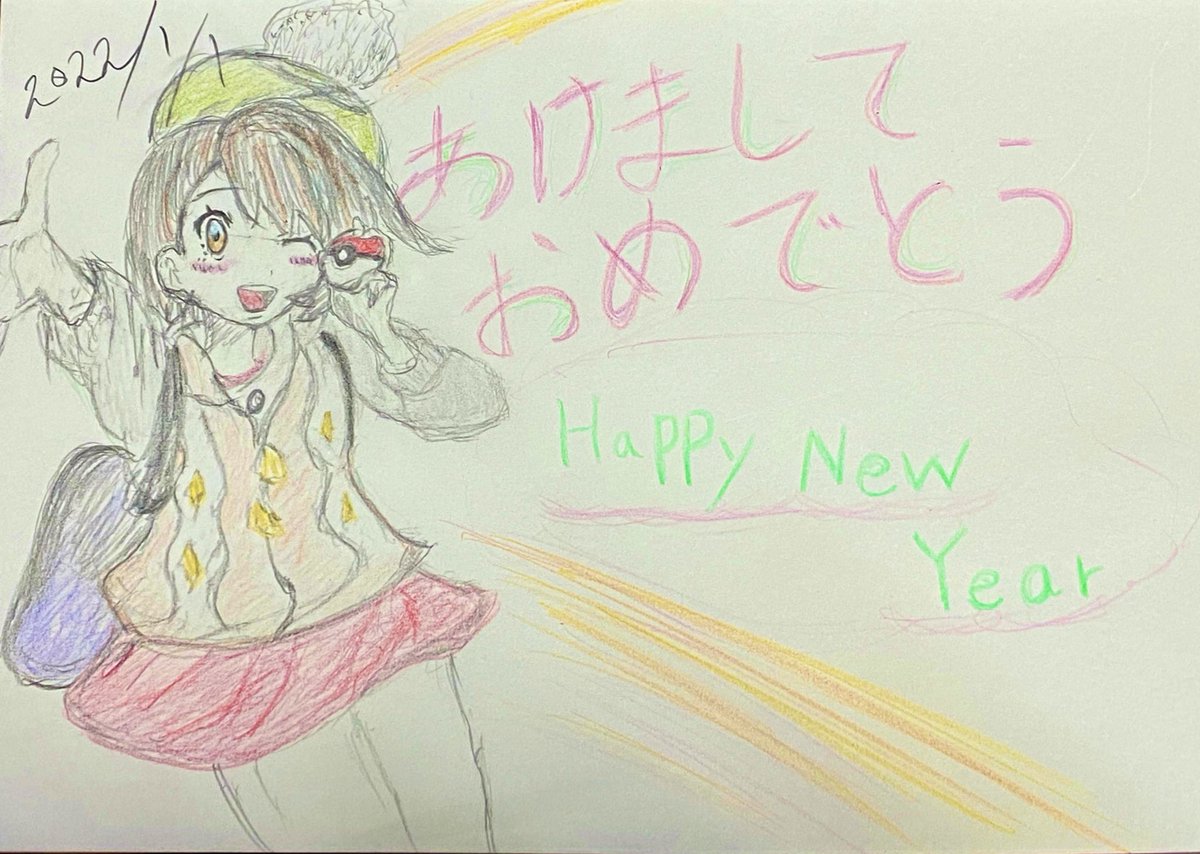 2022/1/1
あけまして
おめでとう
Happy New
Year